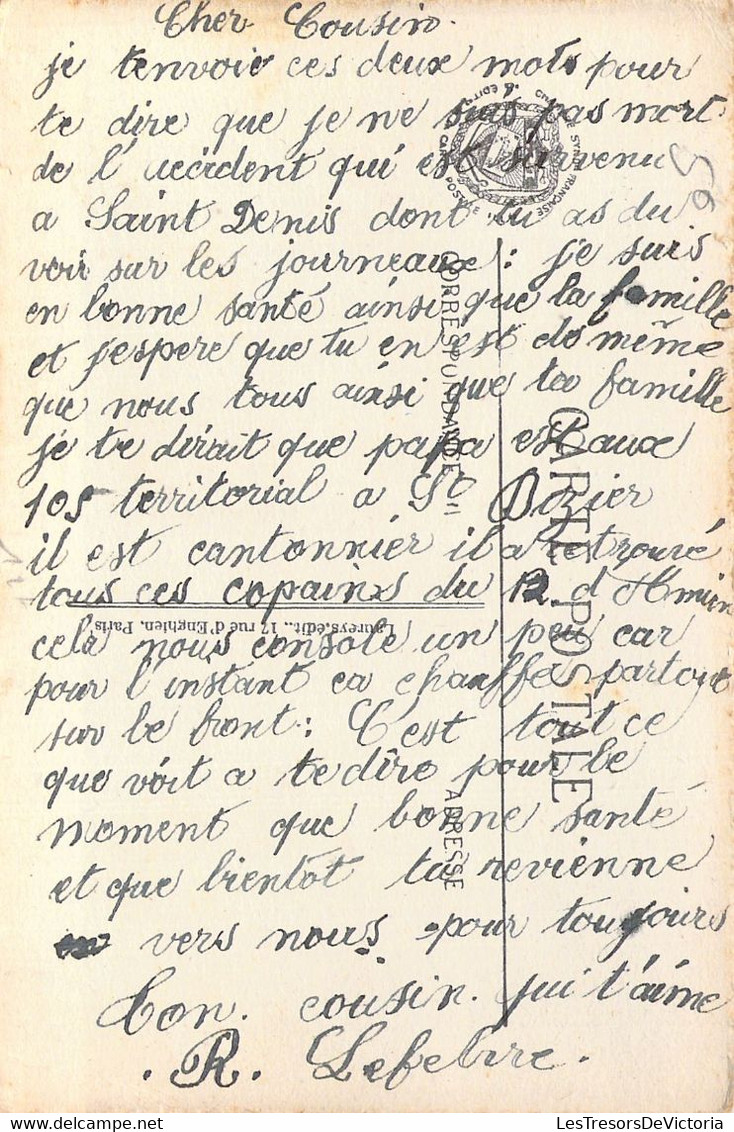 Cher Cousin.
je tenvoie ces deux mots pour
te dire que je ne suis pas mort
de l'accident qui est survenu
a Saint Denis dont tu as du
voir sur les journeaux : je suis
en bonne santé ainsi que la famille
et j'espere que tu en est do même
que nous tous ainsi que ta famille
je te dirait que papa est aux
10s territorial a St Dizier
il est cantonnier il a retrouvé
tous ces copains du 12. d'
cela nous console un peu car
pour l'instant ca chauffe partout
sur le front : C'est tout ce
que voit a te dire pour le
moment que bonne santé
et que bientôt tu revienne
vers nous pour toujours
Ton. cousin. qui t'aime
. R. Lefebvre.
CORRESPONDANCE
CARTE POSTALE
ADRESSE
Laureys, édit., 17 rue d'Enghien, Paris
95
LesTresorsDeVictoria